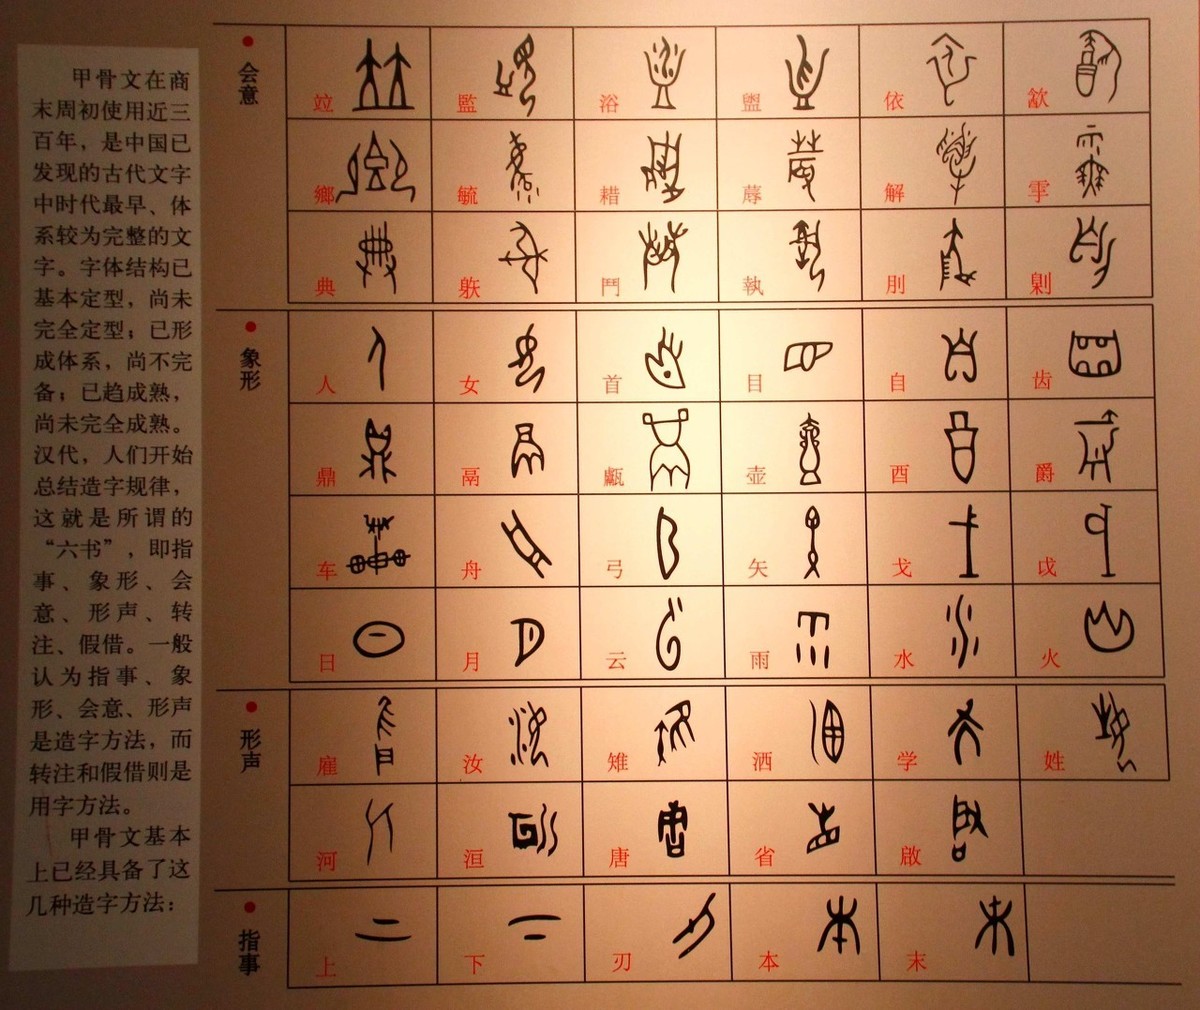 甲骨文在商
末周初使用近三
百年，是中国已
发现的古代文字
中时代最早、体
系较为完整的文
字。字体结构已
基本定型，尚未
完全定型；已形
成体系，尚不完
备；已趋成熟，
尚未完全成熟。
汉代，人们开始
总结造字规律，
这就是所谓的
“六书”，即指
事、象形、会
意、形声、转
注、假借。一般
认为指事、象
形、会意、形声
是造字方法，而
转注和假借则是
用字方法。
甲骨文基本
上已经具备了这
几种造字方法：
会意
竝 監 浴 盥 依 歙
鄉 毓 耤 蓐 解 雫
典 㚔 鬥 執 刖 劓
象形
人 女 首 目 自 齿
鼎 鬲 甗 壶 酉 爵
车 舟 弓 矢 戈 戉
日 月 云 雨 水 火
形声
雇 汝 雉 洒 学 姓
河 洹 唐 省 啟
指事
上 下 刃 本 末